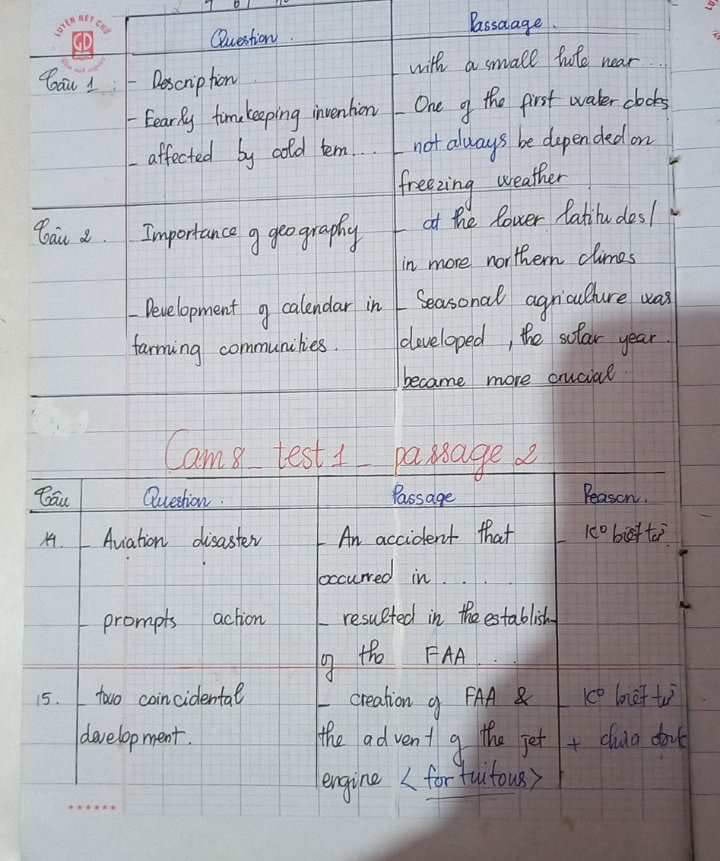 LUYỆN NÉT CHỮ
GD
Question.
Passaage.
Câu 1:
- Description
with a small hole near ...
- Eearly timekeeping invention
- One of the first water clocks
- affected by cold tem....
- not always be depended on
freezing weather
Câu 2.
Importance of geography
- at the lower latitudes/
in more northern climes
- Development of calendar in
farming communities.
- Seasonal agriculture was
developed, the solar year.
became more crucial.
Cam 8_ test 1_ passage 2
Câu
Question.
Passage
Reason.
14.
- Aviation disaster
- An accident that
occurred in ....
- K° biết từ
- prompts action
- resulted in the establish
of the FAA ...
15.
- two coincidental
development.
- creation of FAA &
the advent of the jet
engine < fortuitous>
- K° biết từ
+ chưa